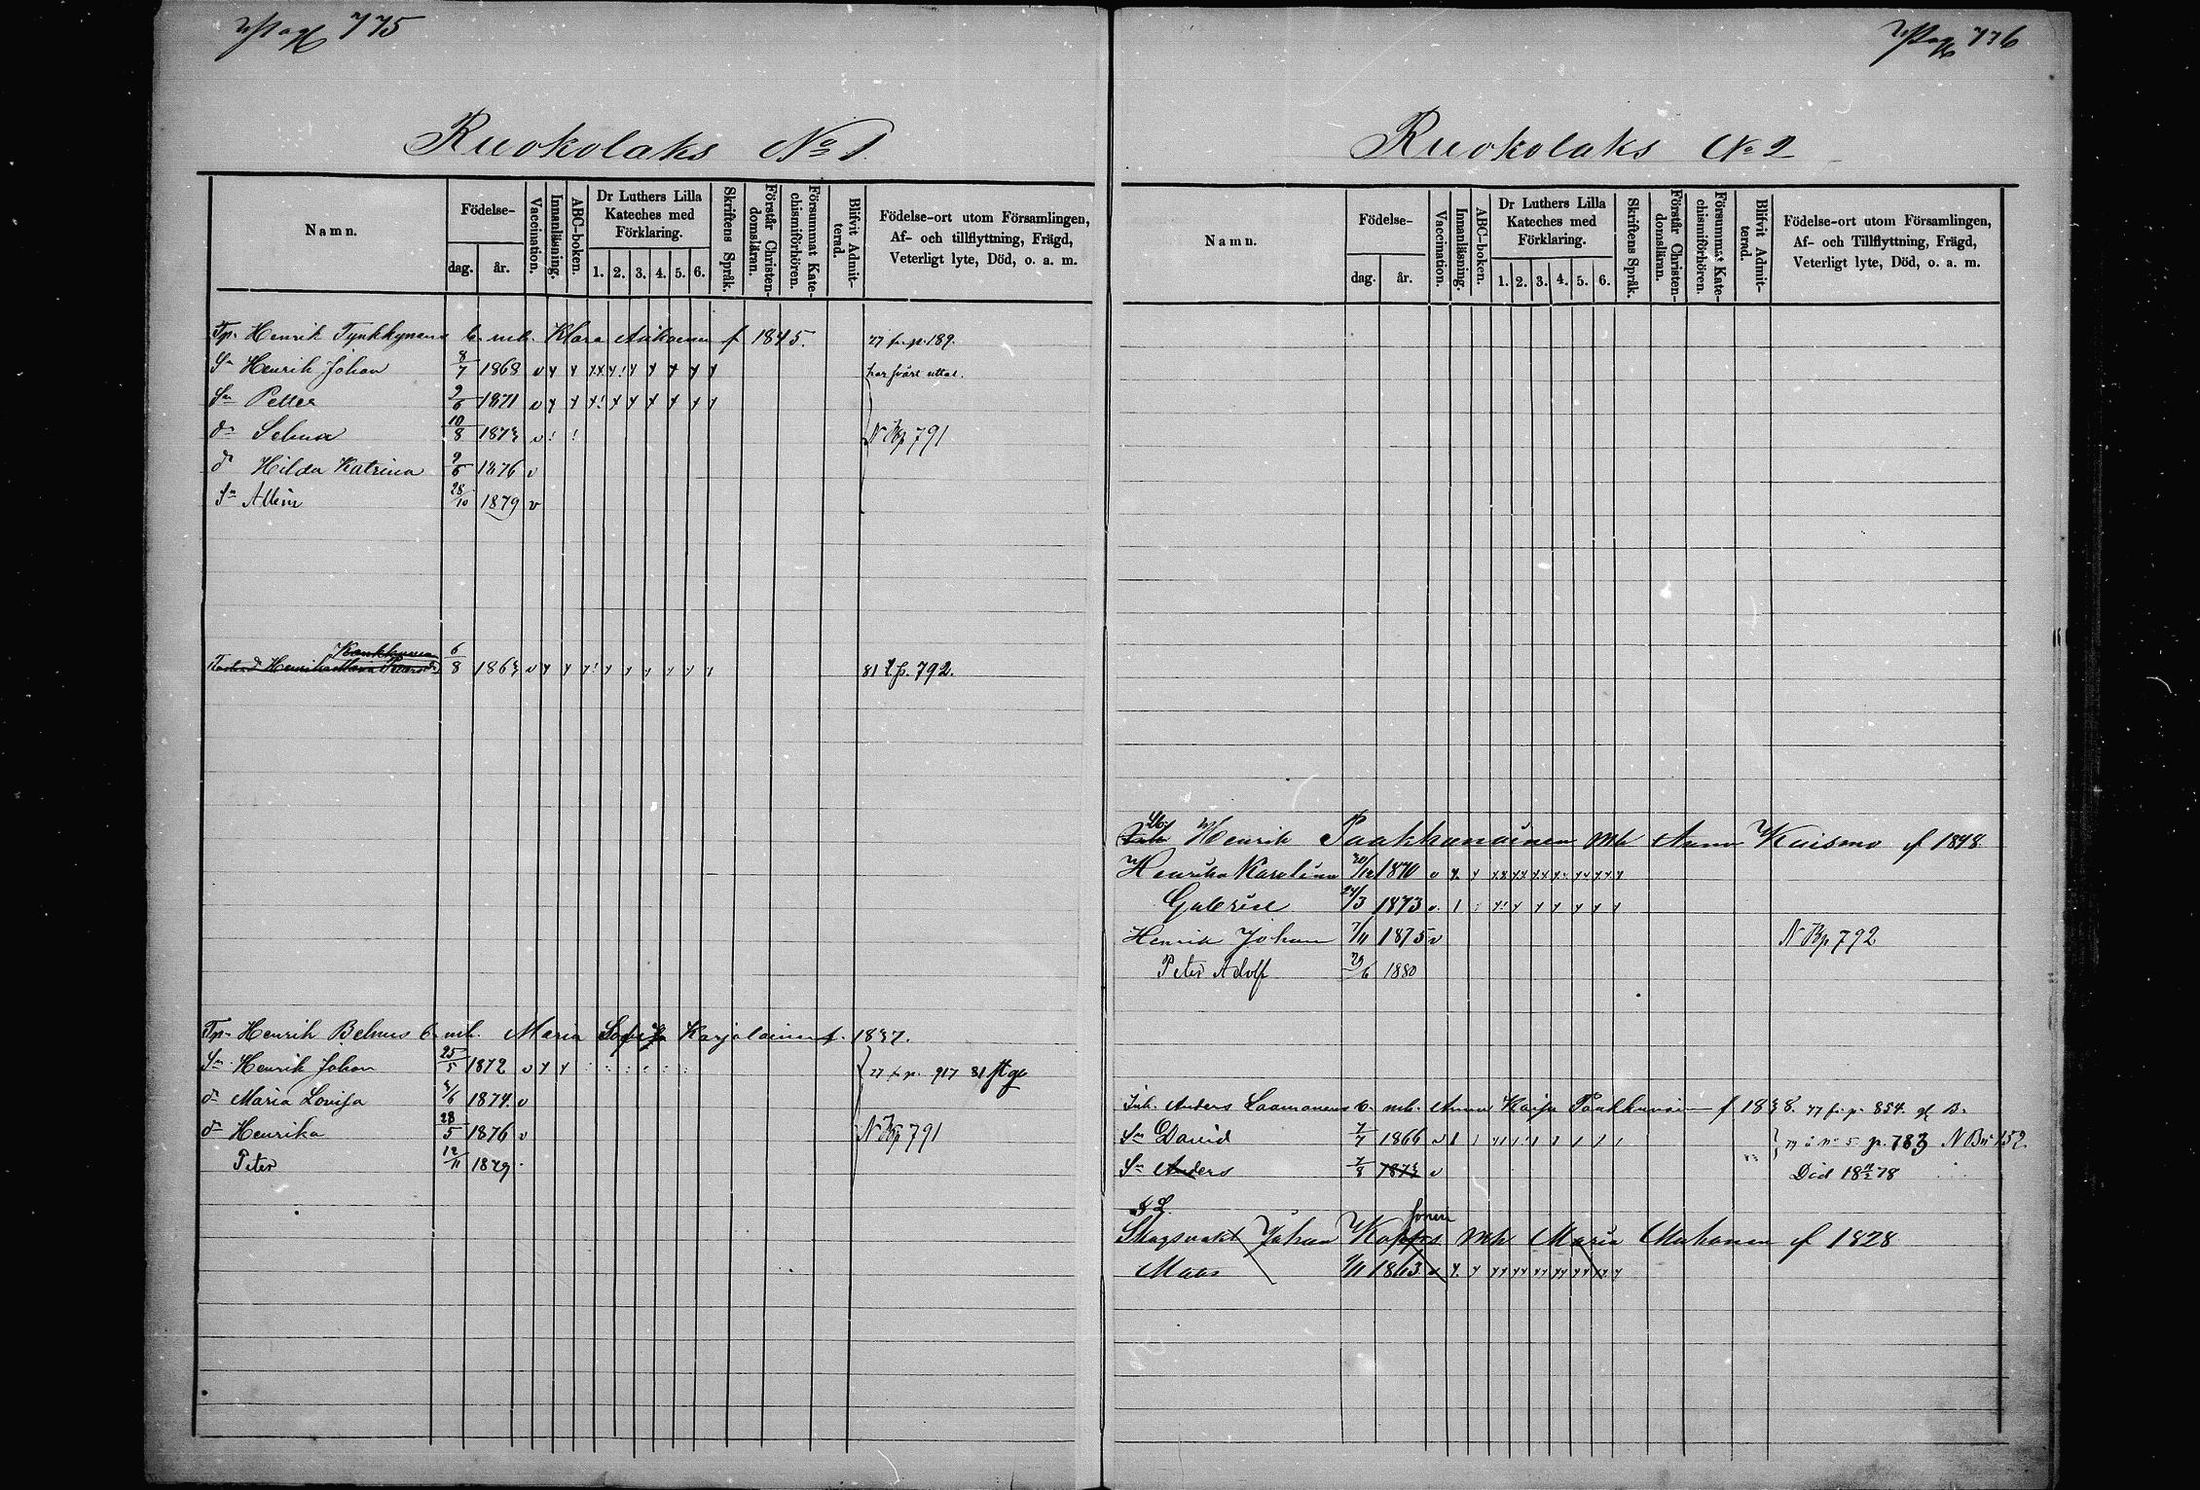 775
Ruokolaks No 1.
Namn.
Födelse-
dag. år.
Vaccination.
Innanläsning.
ABC-boken.
Dr Luthers Lilla
Kateches med
Förklaring.
1. 2. 3. 4. 5. 6.
Skriftens Språk.
Förstår Christen-
domsläran.
Försummat Kate-
chismiförhören.
Blifvit Admit-
terad.
Födelse-ort utom Församlingen,
Af- och tillflyttning, Frägd,
Veterligt lyte, Död, o. a. m.
Henrik Tynkkynens mh. Klara f 1845. 77 fr. p. 189.
Sn Henrik Johan 8/7 1868 v har svårt uttal.
Sn Petter 2/6 1871 v
dr Selma 10/8 1873 v N Bp 791
dr Hilda Katrina 9/6 1876 v
Sn Albin 28/10 1879 v
6/8 1863 v 81 t. p. 792.
Henrik Belmus mh. Maria Sofia Karjalainen f. 1837.
Sn Henrik Johan 25/5 1872 v 77 fr. p. 917 81
dr Maria Lovisa 4/6 1874 v
dr Henrika 28/5 1876 v N Bp 791
Peter 12/11 1879
776
Ruokolaks No 2
Namn.
Födelse-
dag. år.
Vaccination.
Innanläsning.
ABC-boken.
Dr Luthers Lilla
Kateches med
Förklaring.
1. 2. 3. 4. 5. 6.
Skriftens Språk.
Förstår Christen-
domsläran.
Försummat Kate-
chismiförhören.
Blifvit Admit-
terad.
Födelse-ort utom Församlingen,
Af- och Tillflyttning, Frägd,
Veterligt lyte, Död, o. a. m.
Henrik Paakkunainen mh Anna Kuismo f 1848
Henrika Karolina 20/12 1870 v
Gabriel 24/3 1873 v
Henrik Johan 7/11 1875 v N Bp 792
Peter Adolf 29/6 1880
Inh. Anders Laamanens mh. Anna Kaisa f 1838. 77 fr. p. 854. B.
Sn David 7/7 1866 v p. 783 152
Sn Anders 7/8 1873 v Död 18 78
Skogsvakt Johan mh Maria Muhonen f 1828
Maas 1863